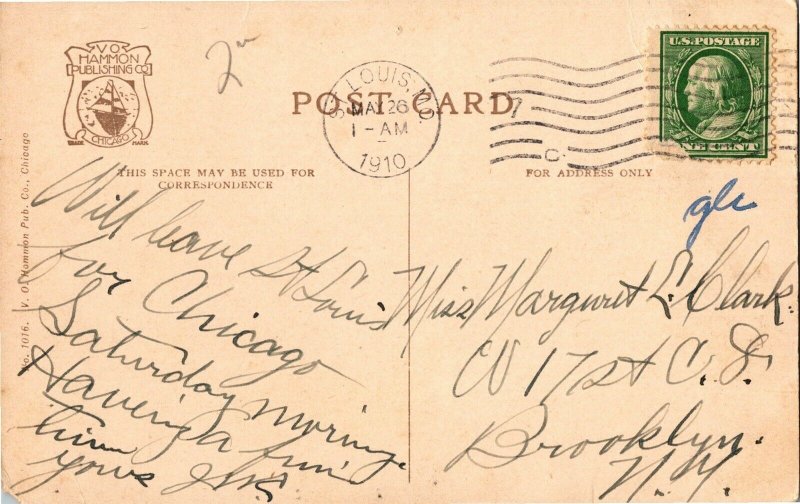 V O
HAMMON
PUBLISHING CO
CHICAGO
TRADE MARK
2
ST. LOUIS, MO.
MAY 26
1 - AM
1910
POST CARD
U.S. POSTAGE
ONE CENT
THIS SPACE MAY BE USED FOR
CORRESPONDENCE
FOR ADDRESS ONLY
No. 1016. V. O. Hammon Pub. Co., Chicago
Will leave St Louis
for Chicago
Saturday morning.
Having a fine
time
yours
Miss Margaret E. Clark.
17st
Brooklyn.
N.Y.